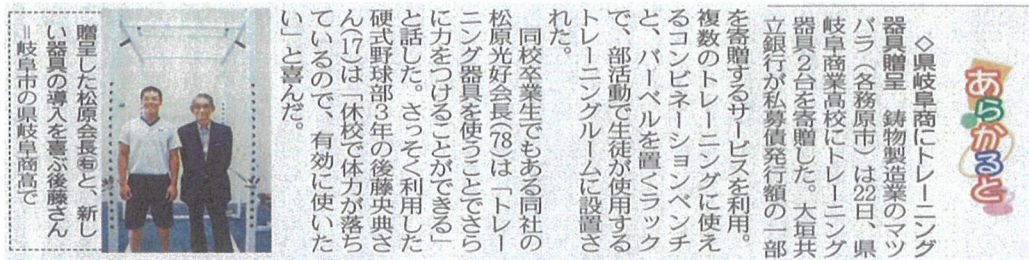 あらかると
◇県岐阜商にトレーニング
器具贈呈　鋳物製造業のマツ
バラ（各務原市）は22日、県
岐阜商業高校にトレーニング
器具2台を寄贈した。大垣共
立銀行が私募債発行額の一部
を寄贈するサービスを利用。
複数のトレーニングに使え
るコンビネーションベンチ
と、バーベルを置くラック
で、部活動で生徒が使用する
トレーニングルームに設置さ
れた。
同校卒業生でもある同社の
松原光好会長(78)は「トレー
ニング器具を使うことでさら
に力をつけることができる」
と話した。さっそく利用した
硬式野球部3年の後藤央典さ
ん(17)は「休校で体力が落ち
ているので、有効に使いた
い」と喜んだ。
贈呈した松原会長㊨と、新し
い器具の導入を喜ぶ後藤さん
＝岐阜市の県岐阜商高で